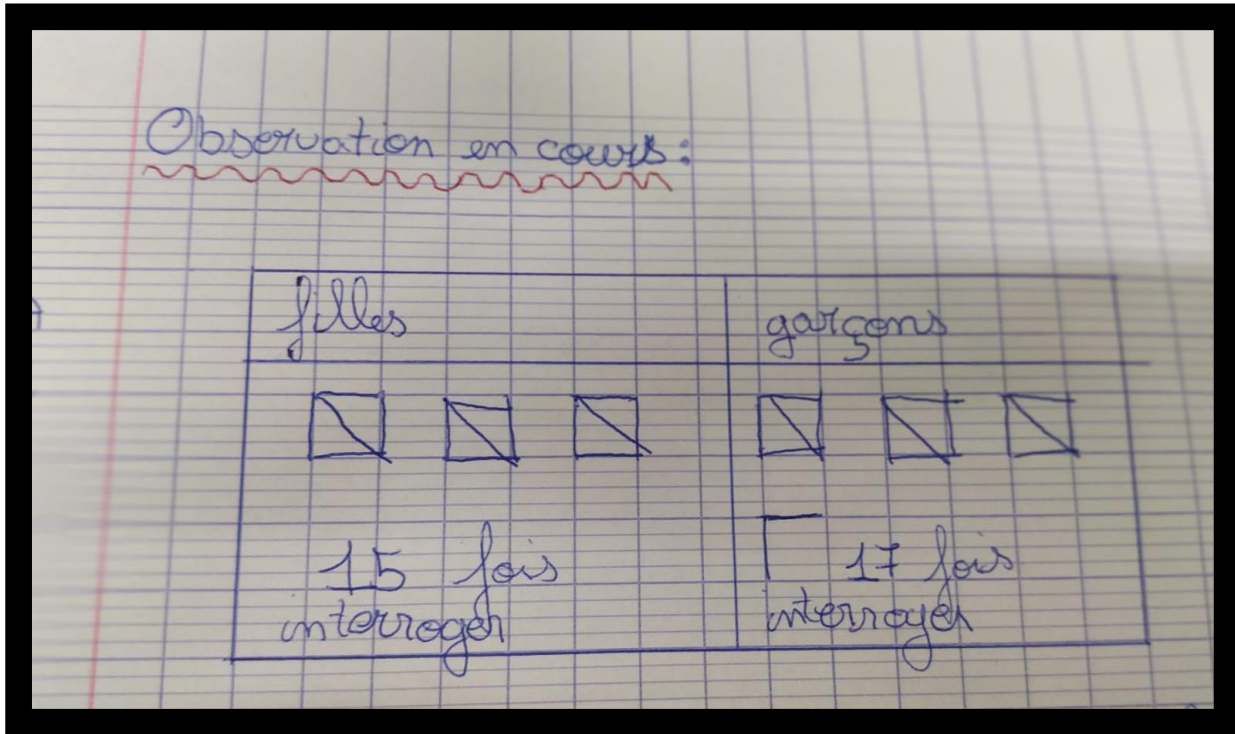 Observation en cours :
filles
garçons
15 fois
interroger
17 fois
interroger